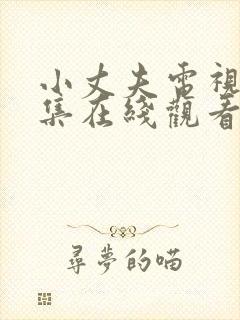 小丈夫電視
集在綫觀看
尋夢的喵